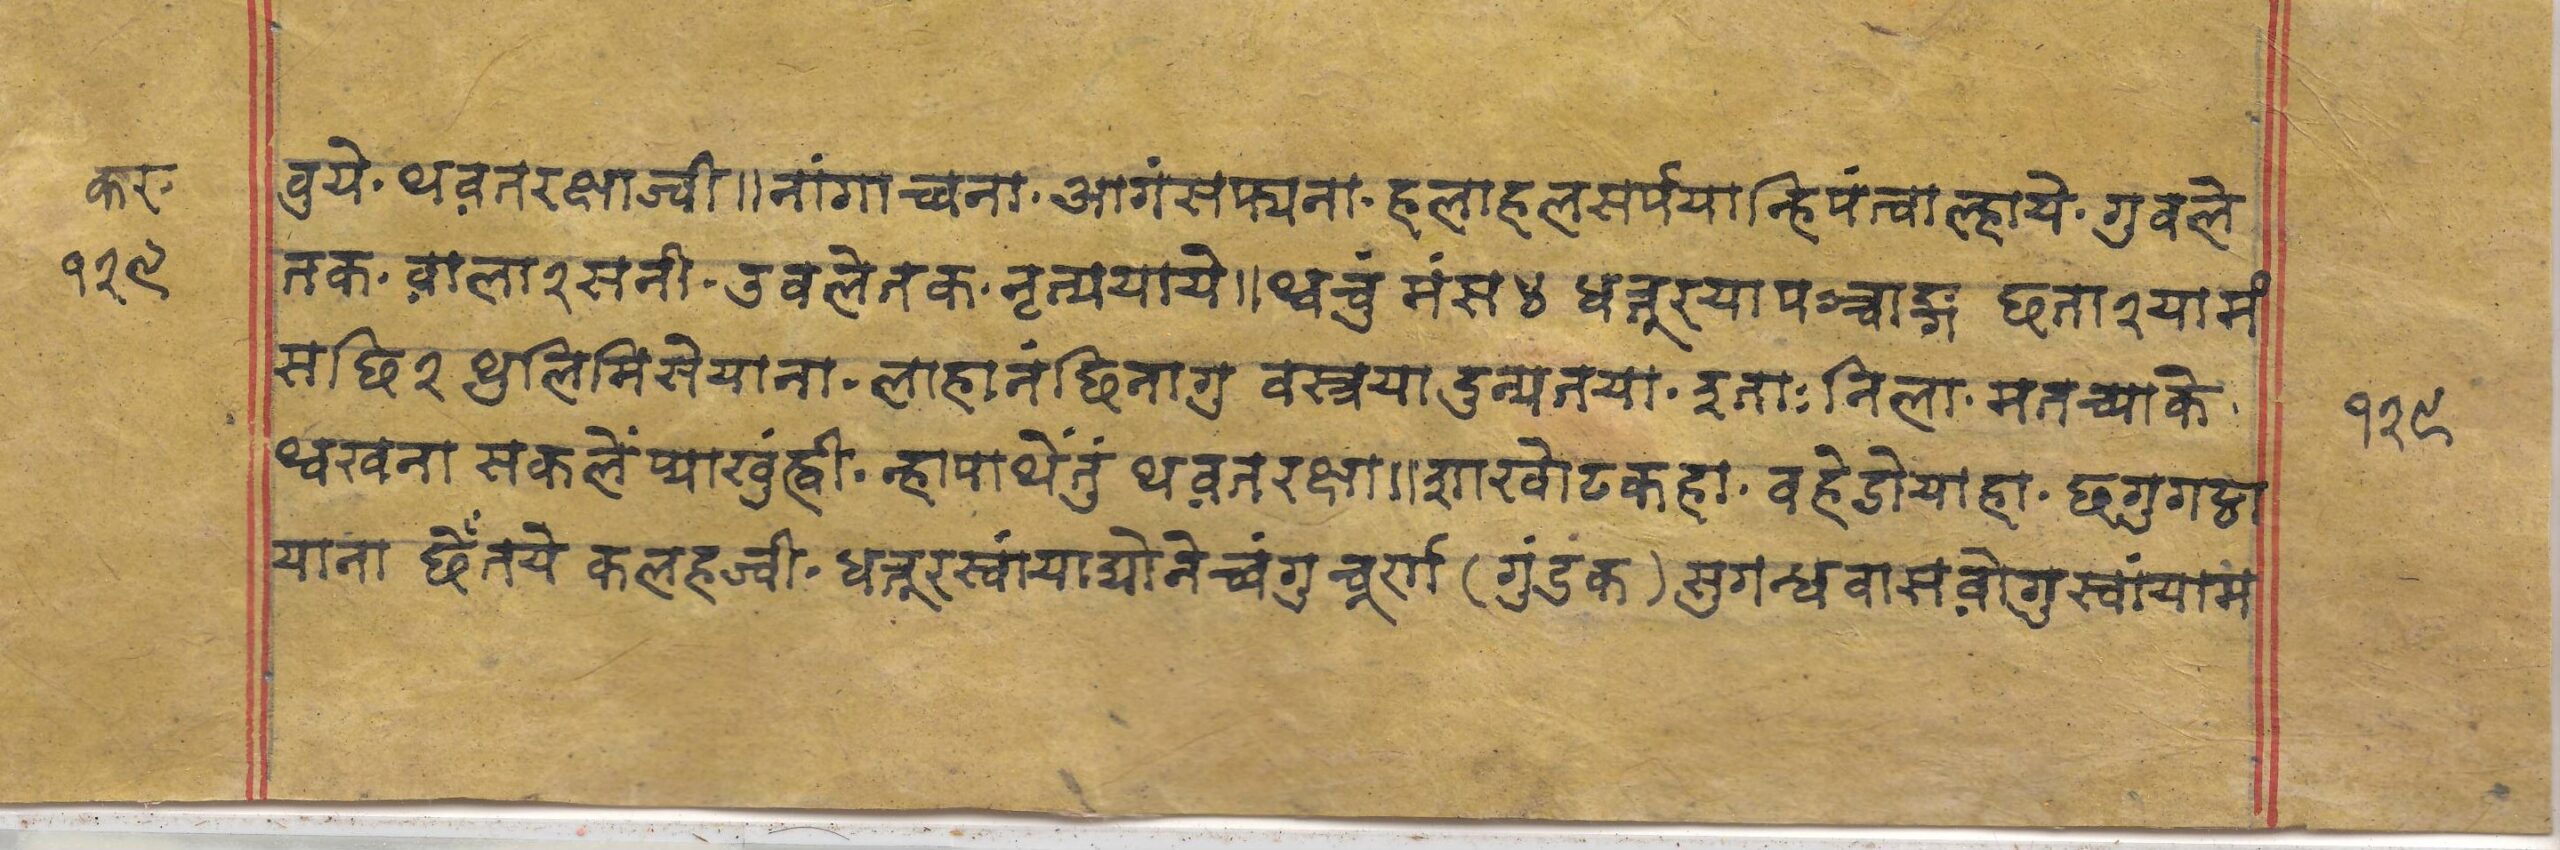 करु
१२९
वुये. थव़तरक्षाज्वी॥नांगाच्वना. आगंसफ्यना. हलाहलसर्पयान्हिपंत्वाल्हाये. गुवले
तक. व़ाला२सनी. उवलेतक. नृत्ययाये॥थ्वचुं मंस४ धत्तूरयापञ्चाङ्ग छता२यामं
सछि२ थुलिमिसेयाना. लाहानंछिनागु वस्त्रयादुन्यतया. इताः निला. मतच्याके.
थ्वखना सकलें प्याखुंह्वी. न्हापाथेंतुं थव़तरक्षा॥शाखोटकहा. वहेडोयाहा. छगुगठा
याना छेँतये कलहज्वी. धत्तूरस्वांयाद्योनेच्वंगुचूर्ण (गुंडंक) सुगन्धवासव़ोगुस्वांयाम
१२९